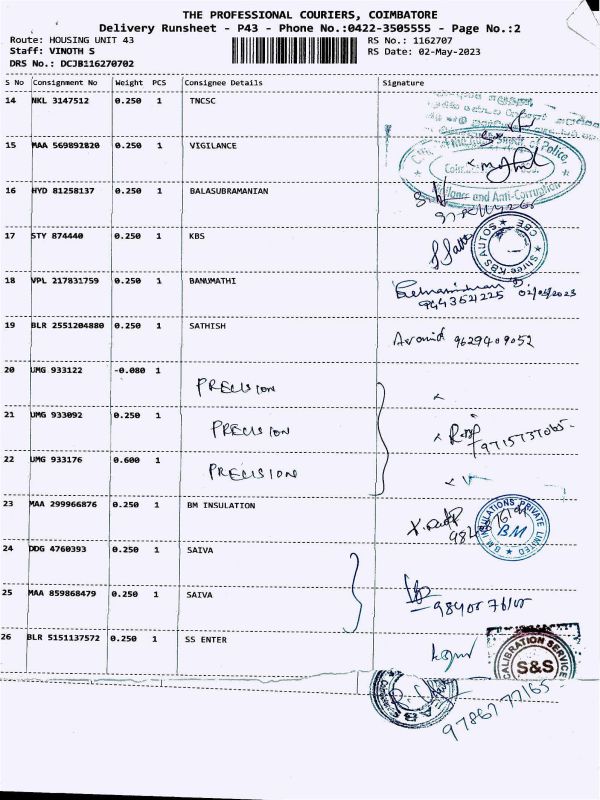 THE PROFESSIONAL COURIERS, COIMBATORE
Delivery Runsheet - P43 - Phone No.:0422-3505555 - Page No.:2
Route: HOUSING UNIT 43
RS No.: 1162707
Staff: VINOTH S
RS Date: 02-May-2023
DRS No.: DCJB116270702
S No Consignment No Weight PCS Consignee Details Signature
14 NKL 3147512 0.250 1 TNCSC
15 MAA 569892820 0.250 1 VIGILANCE
16 HYD 81258137 0.250 1 BALASUBRAMANIAN
17 STY 874440 0.250 1 KBS
Shree KBS AUTOS ★ CBE ★
18 VPL 217831759 0.250 1 BANUMATHI
9443621225 02/05/2023
19 BLR 2551204880 0.250 1 SATHISH
Aravind 9629409052
20 UMG 933122 -0.080 1 PRECISION
21 UMG 933092 0.250 1 PRECISION
22 UMG 933176 0.600 1 PRECISION
23 MAA 299966876 0.250 1 BM INSULATION
B M INSULATIONS PRIVATE LIMITED ★
BM
24 DDG 4760393 0.250 1 SAIVA
25 MAA 859868479 0.250 1 SAIVA
26 BLR 5151137572 0.250 1 SS ENTER
CALIBRATION SERVICE
S&S
9786777165